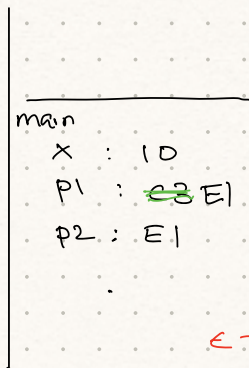 main
x : 10
p1 : E1
p2 : E1
.